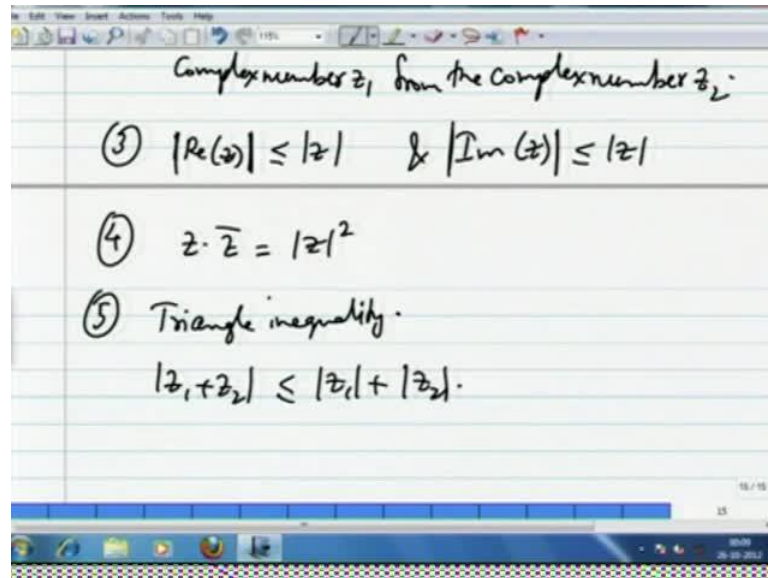 Edit View Insert Actions Tools Help
115%
Complex number z₁ from the complex number z₂.
③ |Re(z)| ≤ |z| & |Im(z)| ≤ |z|
④ z·z̅ = |z|²
⑤ Triangle inequality.
|z₁+z₂| ≤ |z₁| + |z₂|.
15 / 15
15
26-10-2012